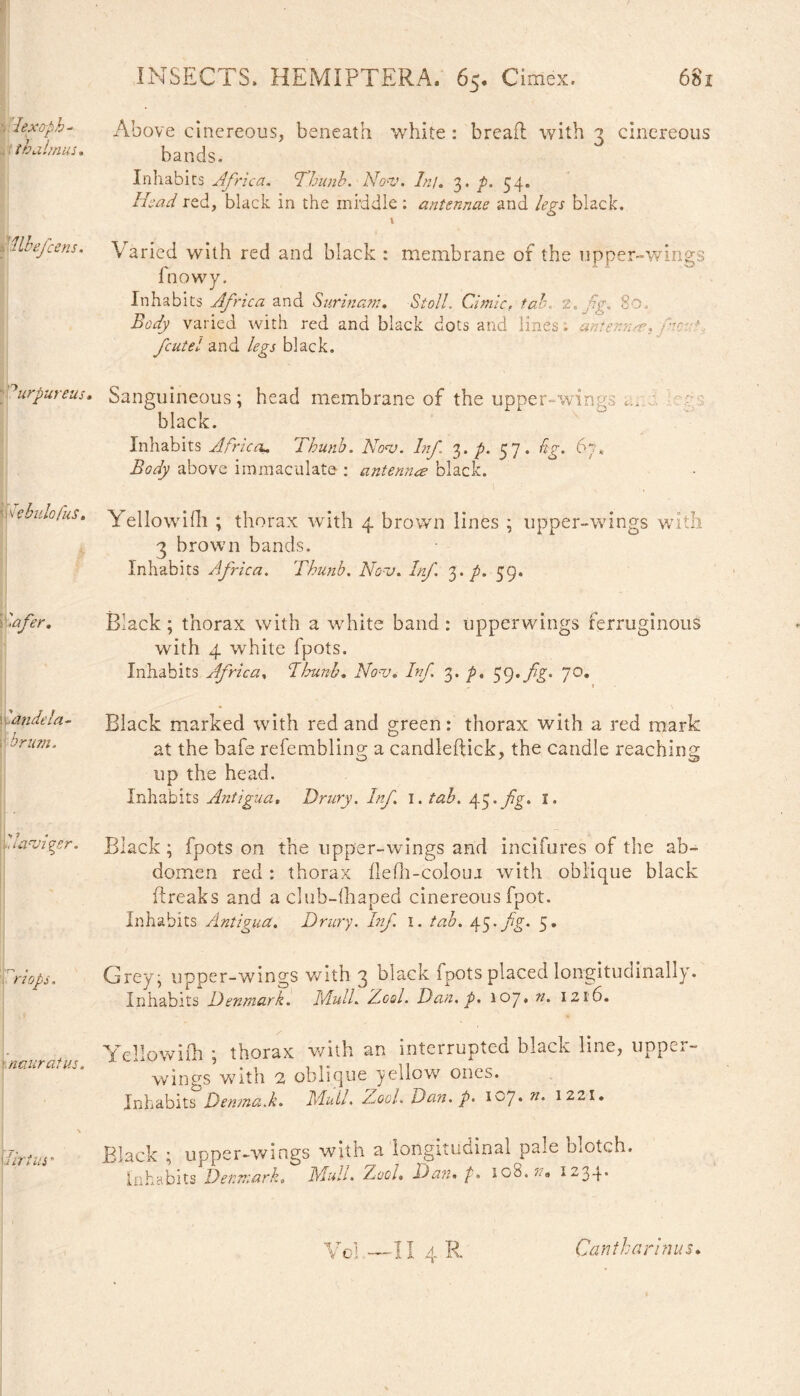 INSECTS. HEMIPTERA. 65. Cimex. 681
lexoph-
thalmus.
Above cinereous, beneath white : breaſt with 3 cinereous
bands.
Inhabits Africa. Thunb. Nov. Inſ. 3. p. 54.
Head red, black in the middle : antennae and legs black.
Albeſcens.
Varied with red and black : membrane of the upper-wings
ſnowy.
Inhabits Africa and Surinam. Stoll. Cimic. tab. 2. fig. 80.
Body varied with red and black dots and lines : antennæ, ſnout,
ſcutel and legs black.
urpureus.
Sanguineous ; head membrane of the upper-wings and legs
black.
Inhabits Africa. Thunb. Nov. Inſ. 3. p. 57. fig. 67.
Body above immaculate : antennæ black.
Nebuloſus.
Yellowiſh ; thorax with 4 brown lines ; upper-wings with
3 brown bands.
Inhabits Africa. Thunb. Nov. Inſ. 3. p. 59.
afer.
Black ; thorax with a white band : upperwings ferruginous
with 4 white ſpots.
Inhabits Africa, Thunb. Nov. Inſ. 3. p. 59. fig. 70.
Candela-
brum.
Black marked with red and green : thorax with a red mark
at the baſe reſembling a candleſtick, the candle reaching
up the head.
Inhabits Antigua. Drury. Inſ. 1. tab. 45. fig. 1.
Claviger.
Black ; ſpots on the upper-wings and inciſures of the ab-
domen red : thorax fleſh-colour with oblique black
ſtreaks and a club-ſhaped cinereous ſpot.
Inhabits Antigua. Drury. Inſ. 1. tab. 45. fig. 5.
riops.
Grey ; upper-wings with 3 black ſpots placed longitudinally.
Inhabits Denmark. Mull. Zool. Dan. p. 107. n. 1216.
nauratus.
Yellowiſh ; thorax with an interrupted black line, upper-
wings with 2 oblique yellow ones.
Inhabits Denma.k. Mull. Zool. Dan. p. 107. n. 1221.
Hirtus.
Black ; upper-wings with a longitudinal pale blotch.
Inhabits Denmark. Mull. Zool. Dan. p. 108. n. 1234.
Vol.—II 4 R Cantharinus.